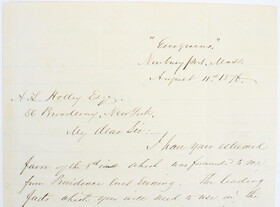 "Evergreens".
Newburyport, Mass.
August 11th 187
A. L. Holley Esq.
56 Broadway, New York.
My dear Sir:—
I have your esteemed
favor of the 9th inst which was forwarded to me
from Providence last evening. The leading
facts which you will need to use in the